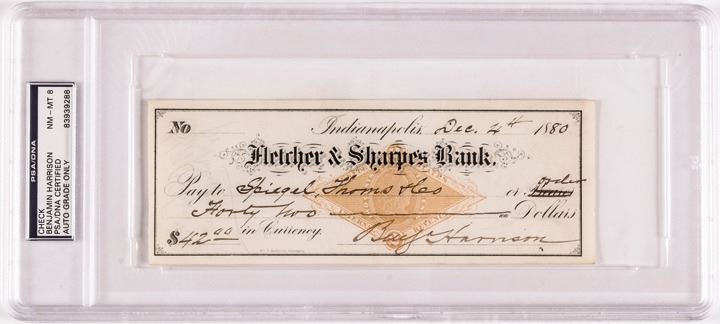 PSA/DNA
CHECK
BENJAMIN HARRISON NM - MT 8
PSA/DNA CERTIFIED
AUTO GRADE ONLY 83939288
No Indianapolis, Dec. 4th 1880
Fletcher & Sharpes Bank.
Pay to Spiegel, Thoms & Co or order
Forty two Dollars
$42.00 in Currency. Benj Harrison